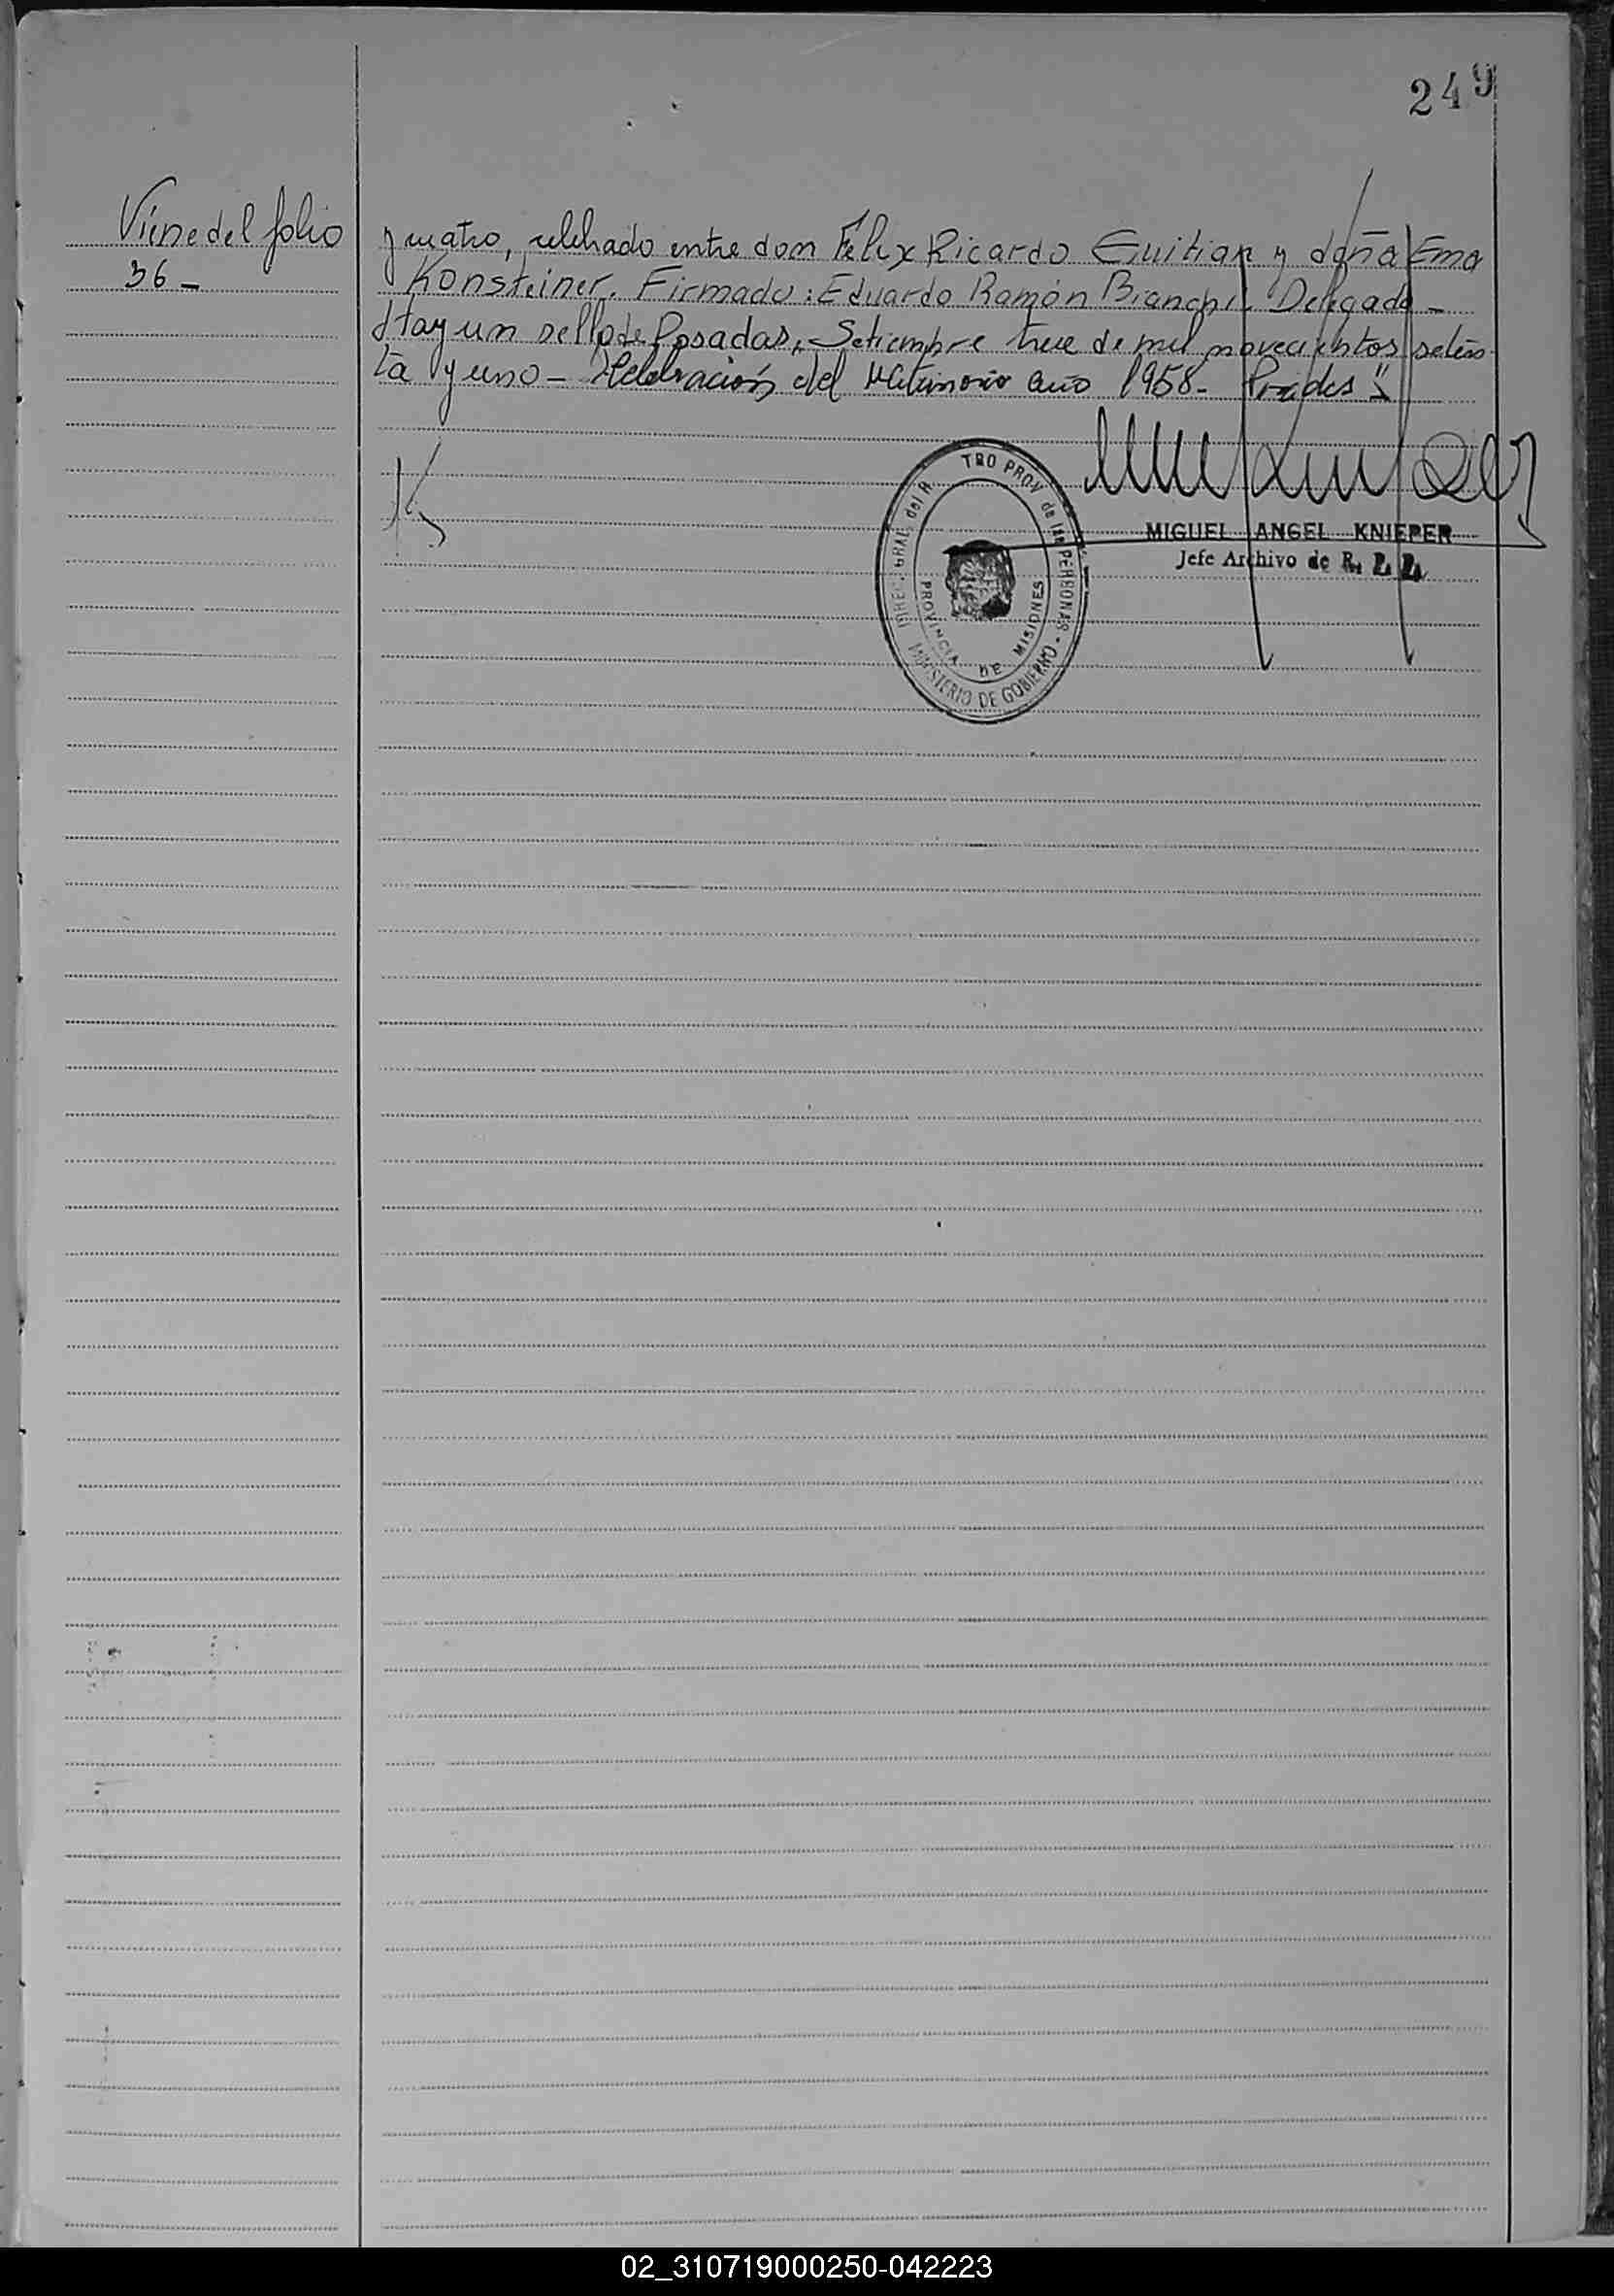 249
Viene del folio
36-
y cuatro, celebrado entre don Félix Ricardo Guitian y doña Ema
Konsteiner. Firmado: Eduardo Ramón Bianchi. Delegado-
Hay un sello de Posadas, Setiembre trece de mil novecientos seten
ta y uno- Celebración del Matrimonio año 1958-
DIREC. GRAL. del R TRO PROV. de las PERSONAS - MINISTERIO DE GOBIERNO -
PROVINCIA DE MISIONES
MIGUEL ANGEL KNIEPER
Jefe Archivo de R. P. P.
02_310719000250-042223